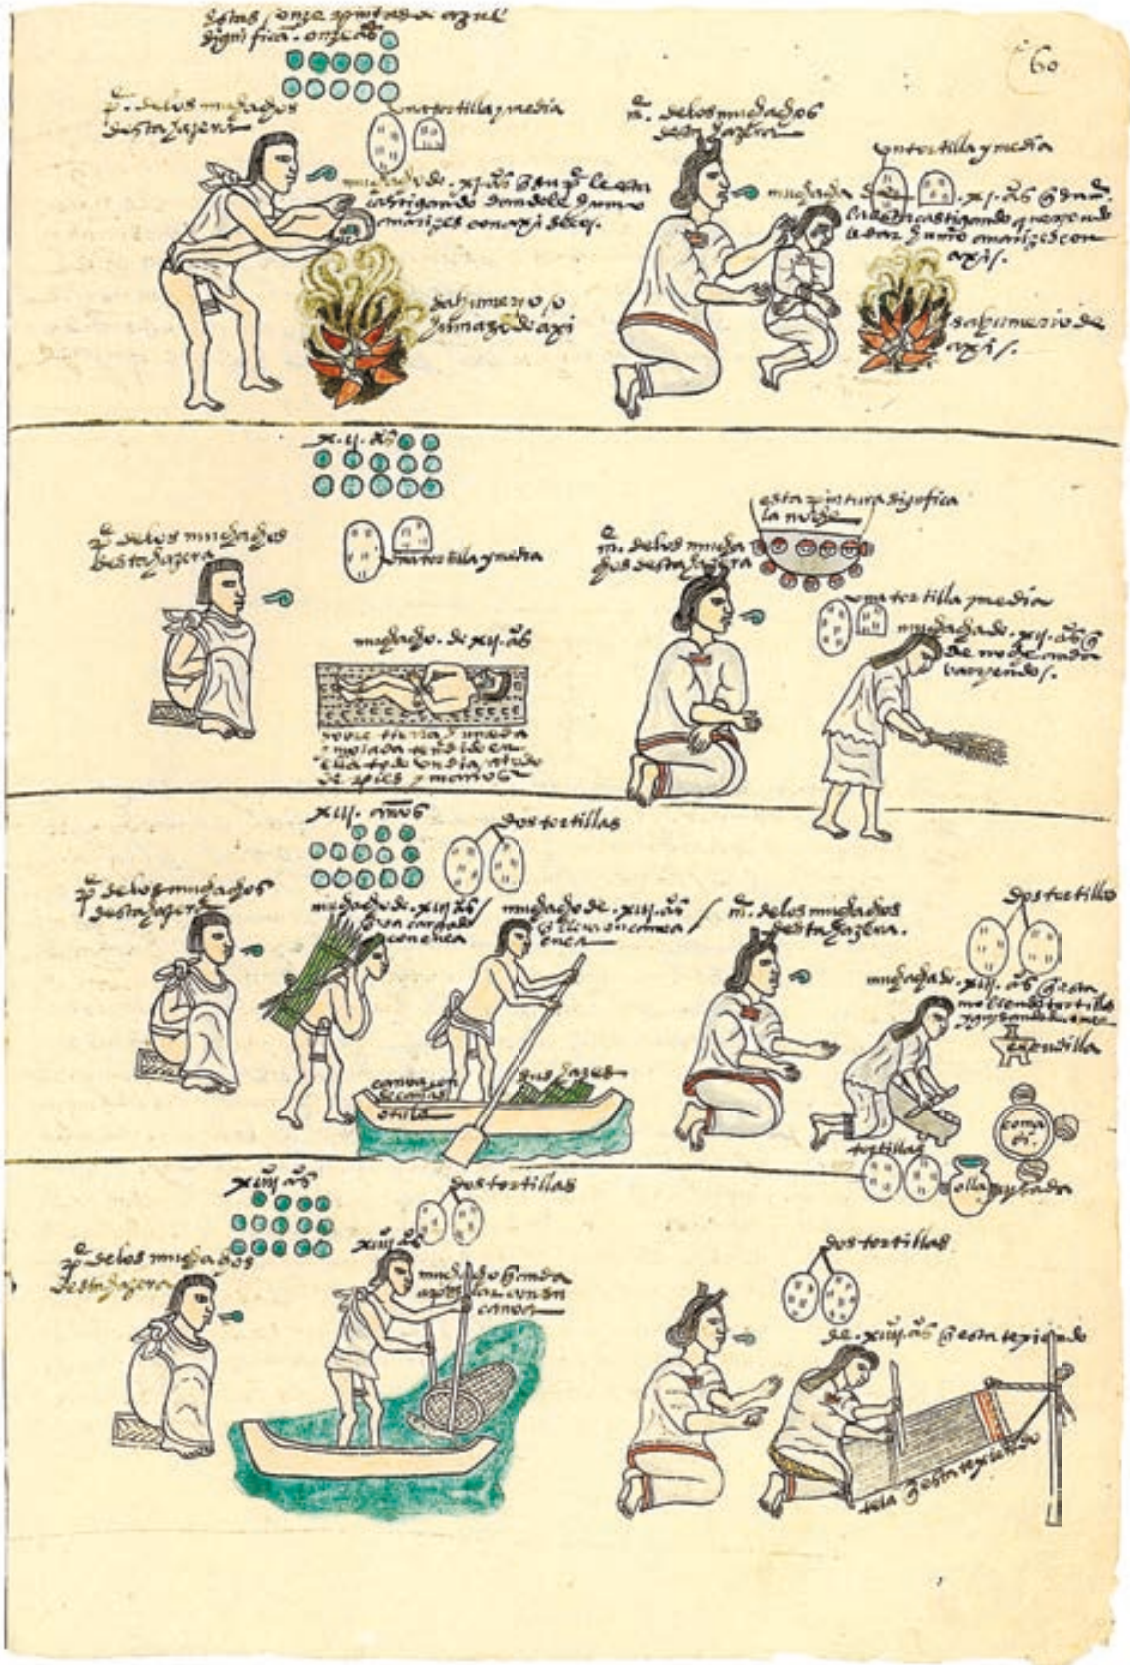 estas onze pintas de azul
significan onze años
60
pe. de los muchachos
desta hazera
una tortilla y media
muchacho de .xi. aºs q̃ su pe le esta
castigando dandole humo
a narizes con axi secos.
sahumerio /o
humazo de axi
me. de los muchachos
desta hazera
una tortilla y media
muchacha de .xi. aºs q̃ su me.
la esta castigando queriendo
le dar humo a narizes con
axis.
sahumerio de
axis/.
x.ii. aºs
pe de los muchachos
desta hazera
una tortilla y media
muchacho. de xii. aºs
sobre tierra humeda
y mojada tendido en
ella todo un dia atado
de pies y manos
esta pintura significa
la noche
me. de los mucha
chos desta hazera
una tortilla y media
muchacha de .xii. aºs q̃
de noche anda
varriendo/.
xiii. años
dos tortillas
pe de los muchachos
desta hazera
muchacho de .xiii. aºs /
q̃ va cargado
con enea
muchacho de .xiii. aºs /
q̃ lleva en canoa
enea
canoa con
de cañas
me. de los muchachos
desta hazera.
dos tortillas
muchacha de .xiii. aºs q̃ esta
moliendo tortillas
escudilla
coma
ol.
tortillas
olla
xiiii aºs
dos tortillas
pe de los muchachos
desta hazera
xiiii aºs
muchacho q̃ anda
a pescar con su
canoa
dos tortillas
de .xiiii. aºs q̃ esta texiendo
tela q̃ esta texiendo